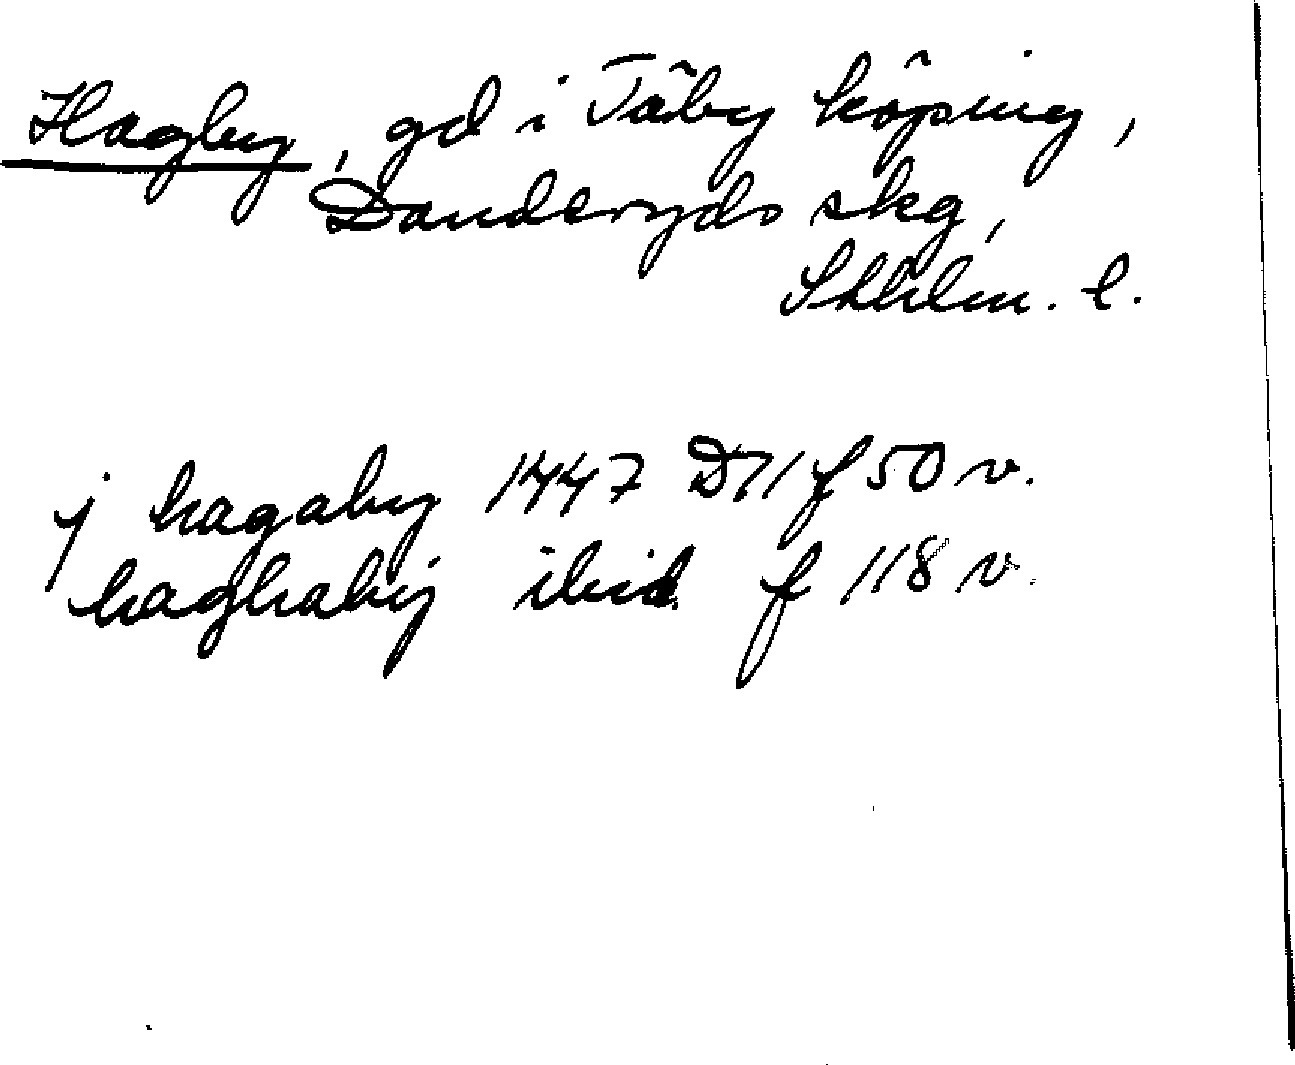 Hagby, gd i Täby köping,
Danderyds skg,
Sthlm. l.
j hagaby 1447 D11 f 50 v.
haghaby ibid f 118 v.